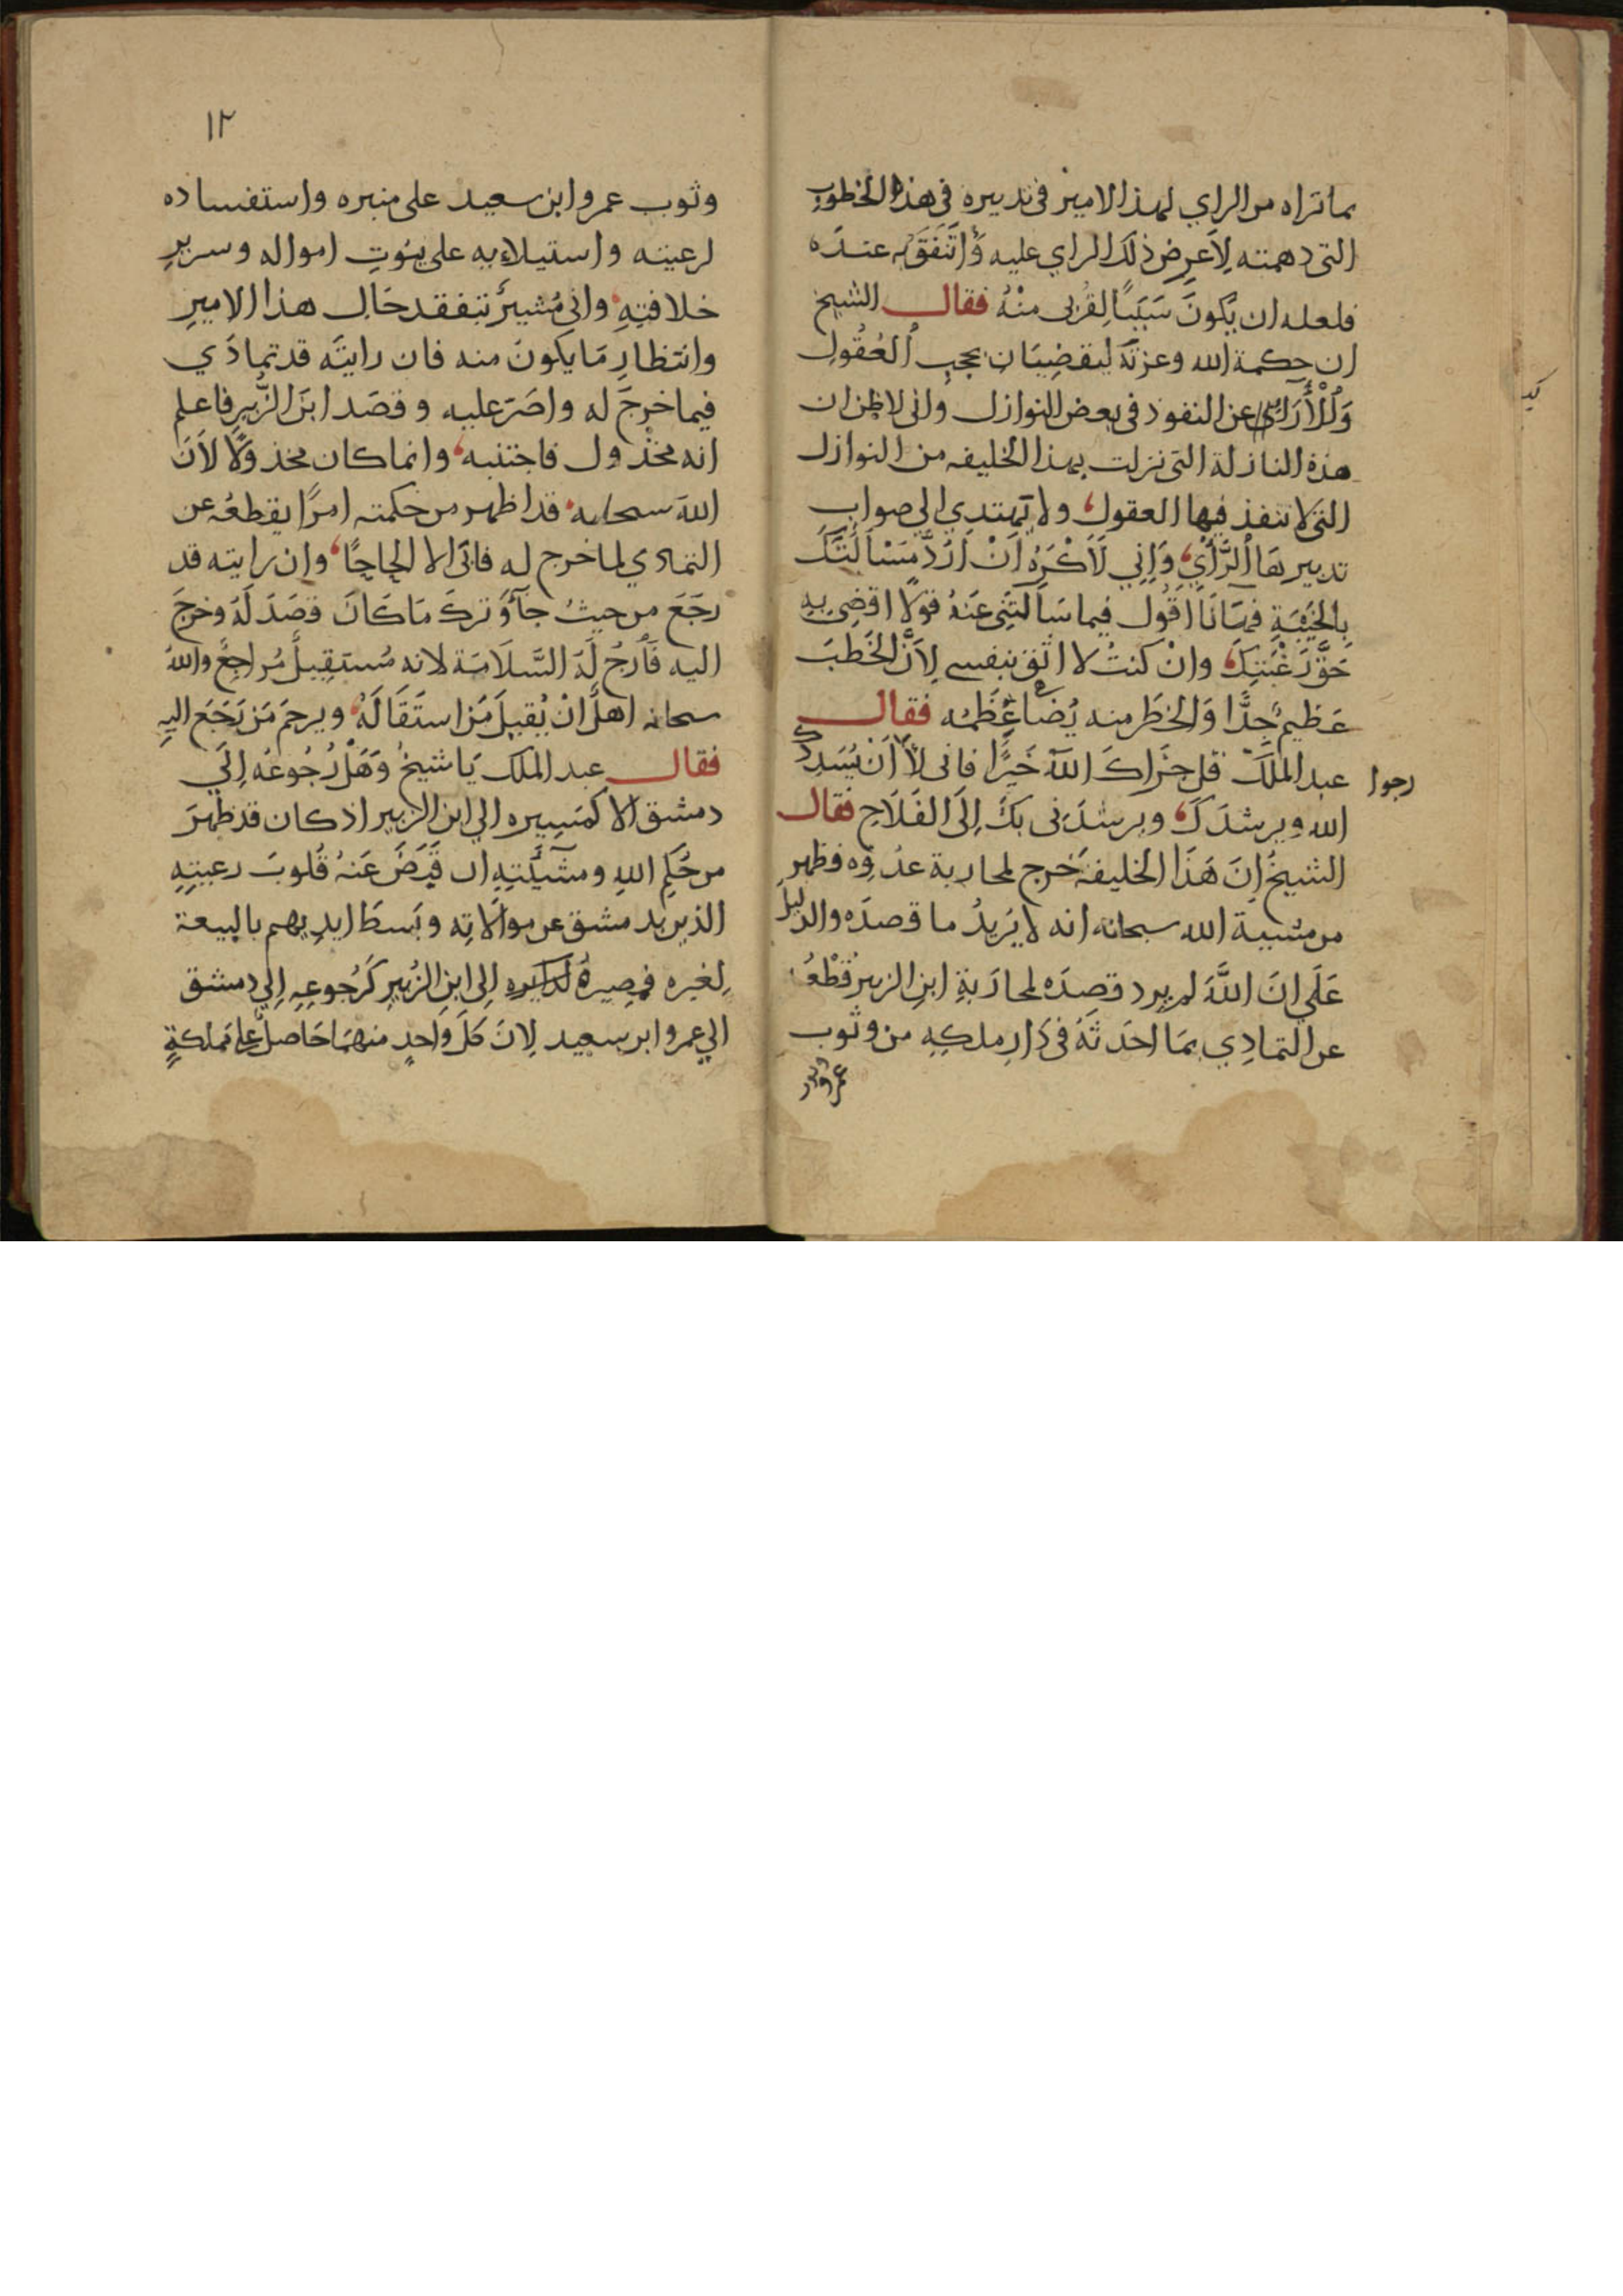 بما تراه من الراي لهذا الامير في تدبيره في هذه الخطوب
التي دهمته لِاَعرِض ذلك الراي عليه وَاَتَّفَقَ عنده
فلعله ان يكونَ سَبَبًا لِقُربى منْهُ فقال الشيخ
ان حكمة الله وعزته ليقضيَان بحجبِ العُقُولِ
وَالْأَرَاءِ عن النفوذ في بعض النوازل واني لاظن ان
هذه النازلة التي نزلت بهذا الخليفه من النوازل
التي لا تنفذ فيها العقول ولا تهتدي الي صوابِ
تدبيرِهَا الرَّأيُ وَاِنِي لَاَكْرَهُ اَنْ اَرُدَّ مَسْاَلَتَكَ
بِالخَيْبَةِ فهَا نَا اَقُول فيما سَاَلتَنِي عَنهُ قولًا اقضِي بِهِ
حَقَّ رَغْبَتِكَ وانْ كنتُ لا اثق بنفسي لِاَنَّ الخَطبَ
عَظيم جِدًّا وَالخطَر منه يُضَاعِ عِظَمُه فقال
عبد الملك قل جَزَاكَ اللهُ خَيرًا فاني لا اَنْ يُسَدِدَكَ
رجوا
الله ويرشدَكَ ويرشدَني بكَ اِلَى الفَلَاحِ فقال
الشيخُ اِنَ هَذَا الخليفةَ خرج لمحاربة عدُوِه وظهر
من مشيية الله سبحانه انه لا يُريدُ ما قصدَه والدليلُ
عَلَي انَ اللَّهَ لم يرد قصدَه لمحارَبةِ ابنِ الزبير قُطْعُهُ
عن التمادِي بمَا احدَثَهُ في دَارِ ملكِهِ من وثوب
عمرو بن
١٢
وثوب عمرو ابن سعيد على منبره واستفساده
لرعيته واستيلاءِيه على بيُوتِ امواله وسريرِ
خلافتِهِ واني مُشيرٌ بتفقد حَال هذا الاميرِ
وانتظارِ مَا يكونَ منه فان رايتَه قد تمادَي
فيما خرجَ له واصَرّ عليه وقصَد ابنَ الزُّبيرِ فاعلم
انه مخذْول فاجتنبه وانما كان مخذولًا لاَنَ
اللهَ سبحانه قد اظهر من حكمته امرًا يقطعُه عن
التمادي لما خرج له فابَى الا لجاجًا وان رايته قد
رجَعَ من حيثُ جآءَ وَتركَ مَا كَانَ قصَدَ لَهُ وخرجَ
اليه فَارجُ لَهُ السَّلَامَة لانه مُستَقِيلٌ مُراجِعٌ واللهُ
سبحانه اهلٌ انْ يُقيلَ مَن استَقَالَهُ ويرحمَ مَن رَجَعَ اليهِ
فقال عبد الملك يَا شيخُ وَهَلْ رُجُوعُه اِلَي
دمشق الا كمَسِيرِه الي ابن الزبير اذ كان قد ظهرَ
من حُكمِ اللهِ ومشَيّتِهِ ان قَبضَ عَنهُ قُلوبَ رعيتِهِ
الذين بدمشق عن موالَاتِه وبَسطَ ايدِيهم بالبيعة
لِغيرِه فمصِيرهُ اِلى ابنِ الزُبَيرِ كَرُجوعِهِ اِلَي دمشق
الي عمرو ابن سعيد لِانَ كلَ واحدٍ منهمَا حَاصل عِلي مَملكةٍ